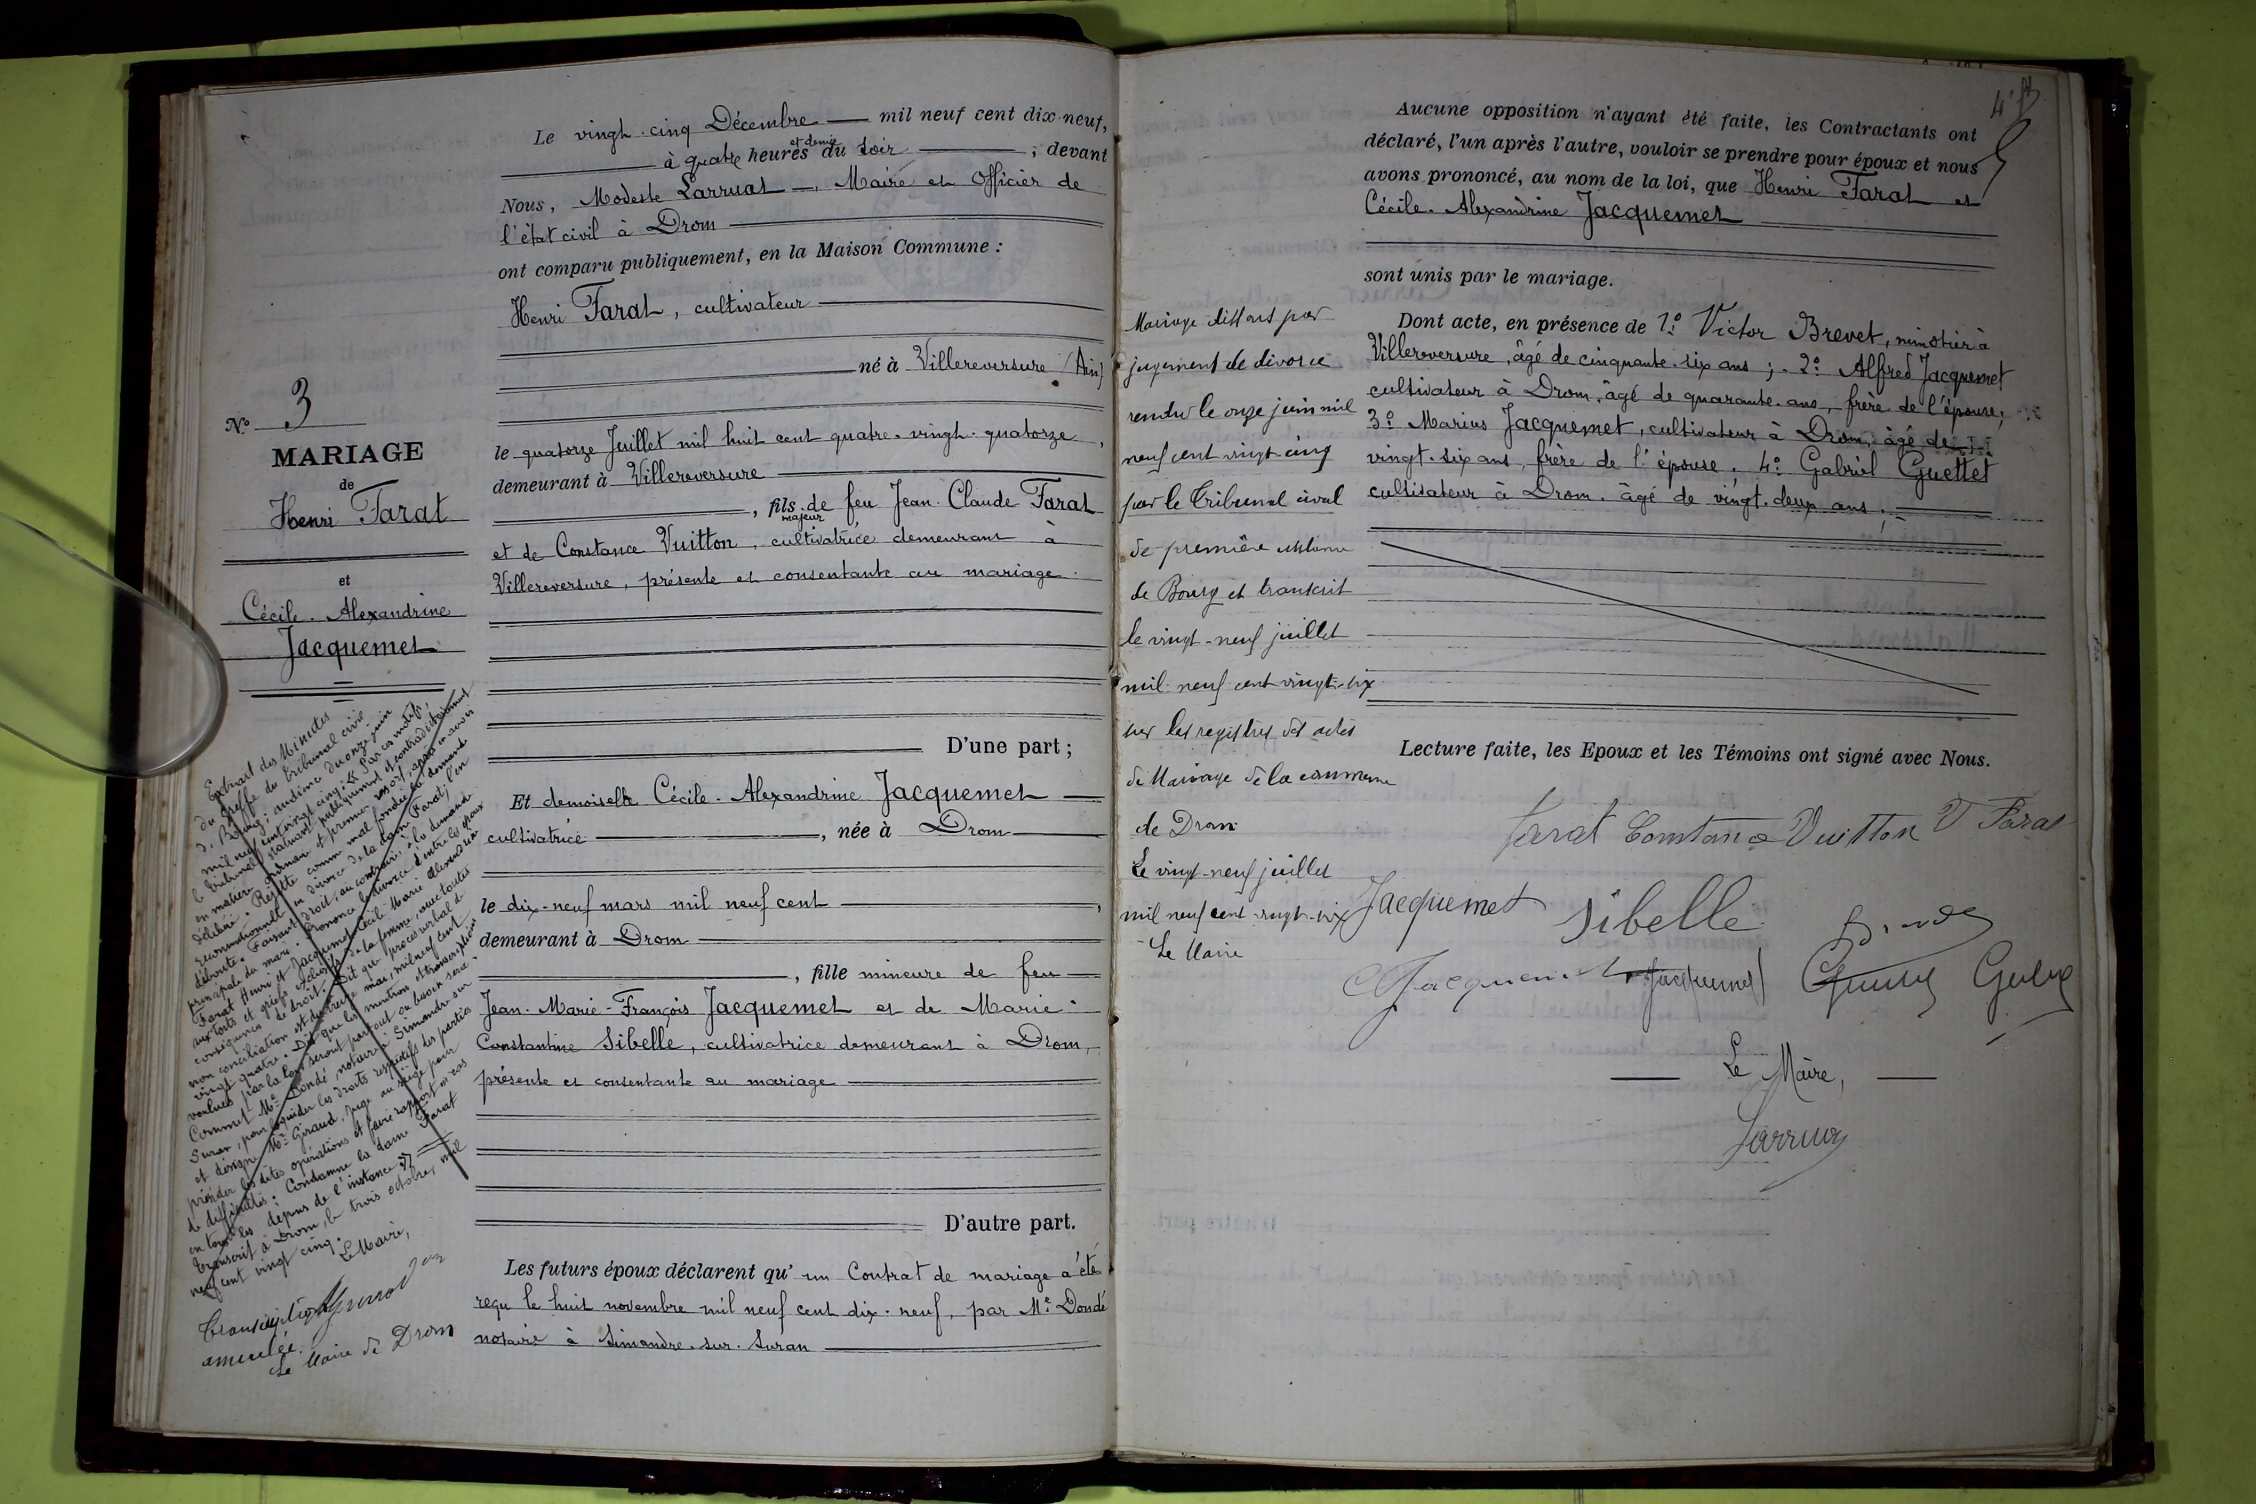 Le vingt-cinq Décembre — mil neuf cent dix-neuf,
à quatre heures et demie du soir —, devant
Nous, Modeste Larruat —, Maire et Officier de
l'état civil à Drom
ont comparu publiquement, en la Maison Commune :
Henri Farat, cultivateur
né à Villereversure (Ain)
le quatorze Juillet mil huit cent quatre-vingt-quatorze,
demeurant à Villereversure
, fils majeur de feu Jean-Claude Farat
et de Constance Vuitton, cultivatrice demeurant à
Villereversure, présente et consentante au mariage.
D'une part ;
Et demoiselle Cécile-Alexandrine Jacquemet
cultivatrice —, née à Drom
le dix-neuf mars mil neuf cent —,
demeurant à Drom
, fille mineure de feu
Jean-Marie-François Jacquemet et de Marie-
Constantine Sibelle, cultivatrice demeurant à Drom,
présente et consentante au mariage
D'autre part.
Les futurs époux déclarent qu'un Contrat de mariage a été
reçu le huit novembre mil neuf cent dix-neuf, par Me Dondé
notaire à Simandre-sur-Suran
N° 3
MARIAGE
de
Henri Farat
et
Cécile-Alexandrine
Jacquemet
Extrait des Minutes
du Greffe du Tribunal civil
de Bourg : audience du onze juin
mil neuf cent vingt cinq : « Par ces motifs,
le Tribunal statuant publiquement et contradictoirement
en matière ordinaire et premier ressort, après en avoir
délibéré. Rejette comme mal fondée la demande
reconventionnelle en divorce de la dame Farat, l'en
déboute. Faisant droit, au contraire, à la demande
principale du mari. Prononce le divorce d'entre les époux
Farat Henri et Jacquemet Cécile Marie Alexandrine
aux torts et griefs exclusifs de la femme, avec toutes
conséquences de droit. Dit que procès verbal de
non conciliation est du treize mai, mil neuf cent
vingt quatre. Dit que les mention et transcription
voulues par la loi seront partout où besoin sera.
Commet Me Dondé, notaire à Simandre sur
Suran, pour liquider les droits respectifs des parties
et désigne Mr Giraud, juge au siège pour
présider les dites opérations et faire rapport en cas
de difficultés. Condamne la dame Farat
en tous les dépens de l'instance. »
Transcrit à Drom, le trois octobre, mil
neuf cent vingt cinq.
Le Maire,
Transcription
annulée.
Le Maire de Drom
Mariage dissous par
jugement de divorce
rendu le onze juin mil
neuf cent vingt cinq
par le Tribunal civil
de première instance
de Bourg et transcrit
le vingt-neuf juillet
mil neuf cent vingt-six
sur les registres des actes
de Mariage de la commune
de Drom
Le vingt-neuf juillet
mil neuf cent vingt-six
Le Maire
Aucune opposition n'ayant été faite, les Contractants ont
déclaré, l'un après l'autre, vouloir se prendre pour époux et nous
avons prononcé, au nom de la loi, que Henri Farat et
Cécile-Alexandrine Jacquemet
sont unis par le mariage.
Dont acte, en présence de 1° Victor Brevet, minotier à
Villereversure, âgé de cinquante-six ans ; 2° Alfred Jacquemet
cultivateur à Drom, âgé de quarante ans, frère de l'épouse,
3° Marius Jacquemet, cultivateur à Drom, âgé de
vingt-six ans, frère de l'épouse. 4° Gabriel Guettet
cultivateur à Drom. âgé de vingt-deux ans ;
Lecture faite, les Epoux et les Témoins ont signé avec Nous.
Farat Constance Vuitton V Farat
Jacquemet Sibelle
Jacquemet Jacquemet
Le Maire,
Larruat